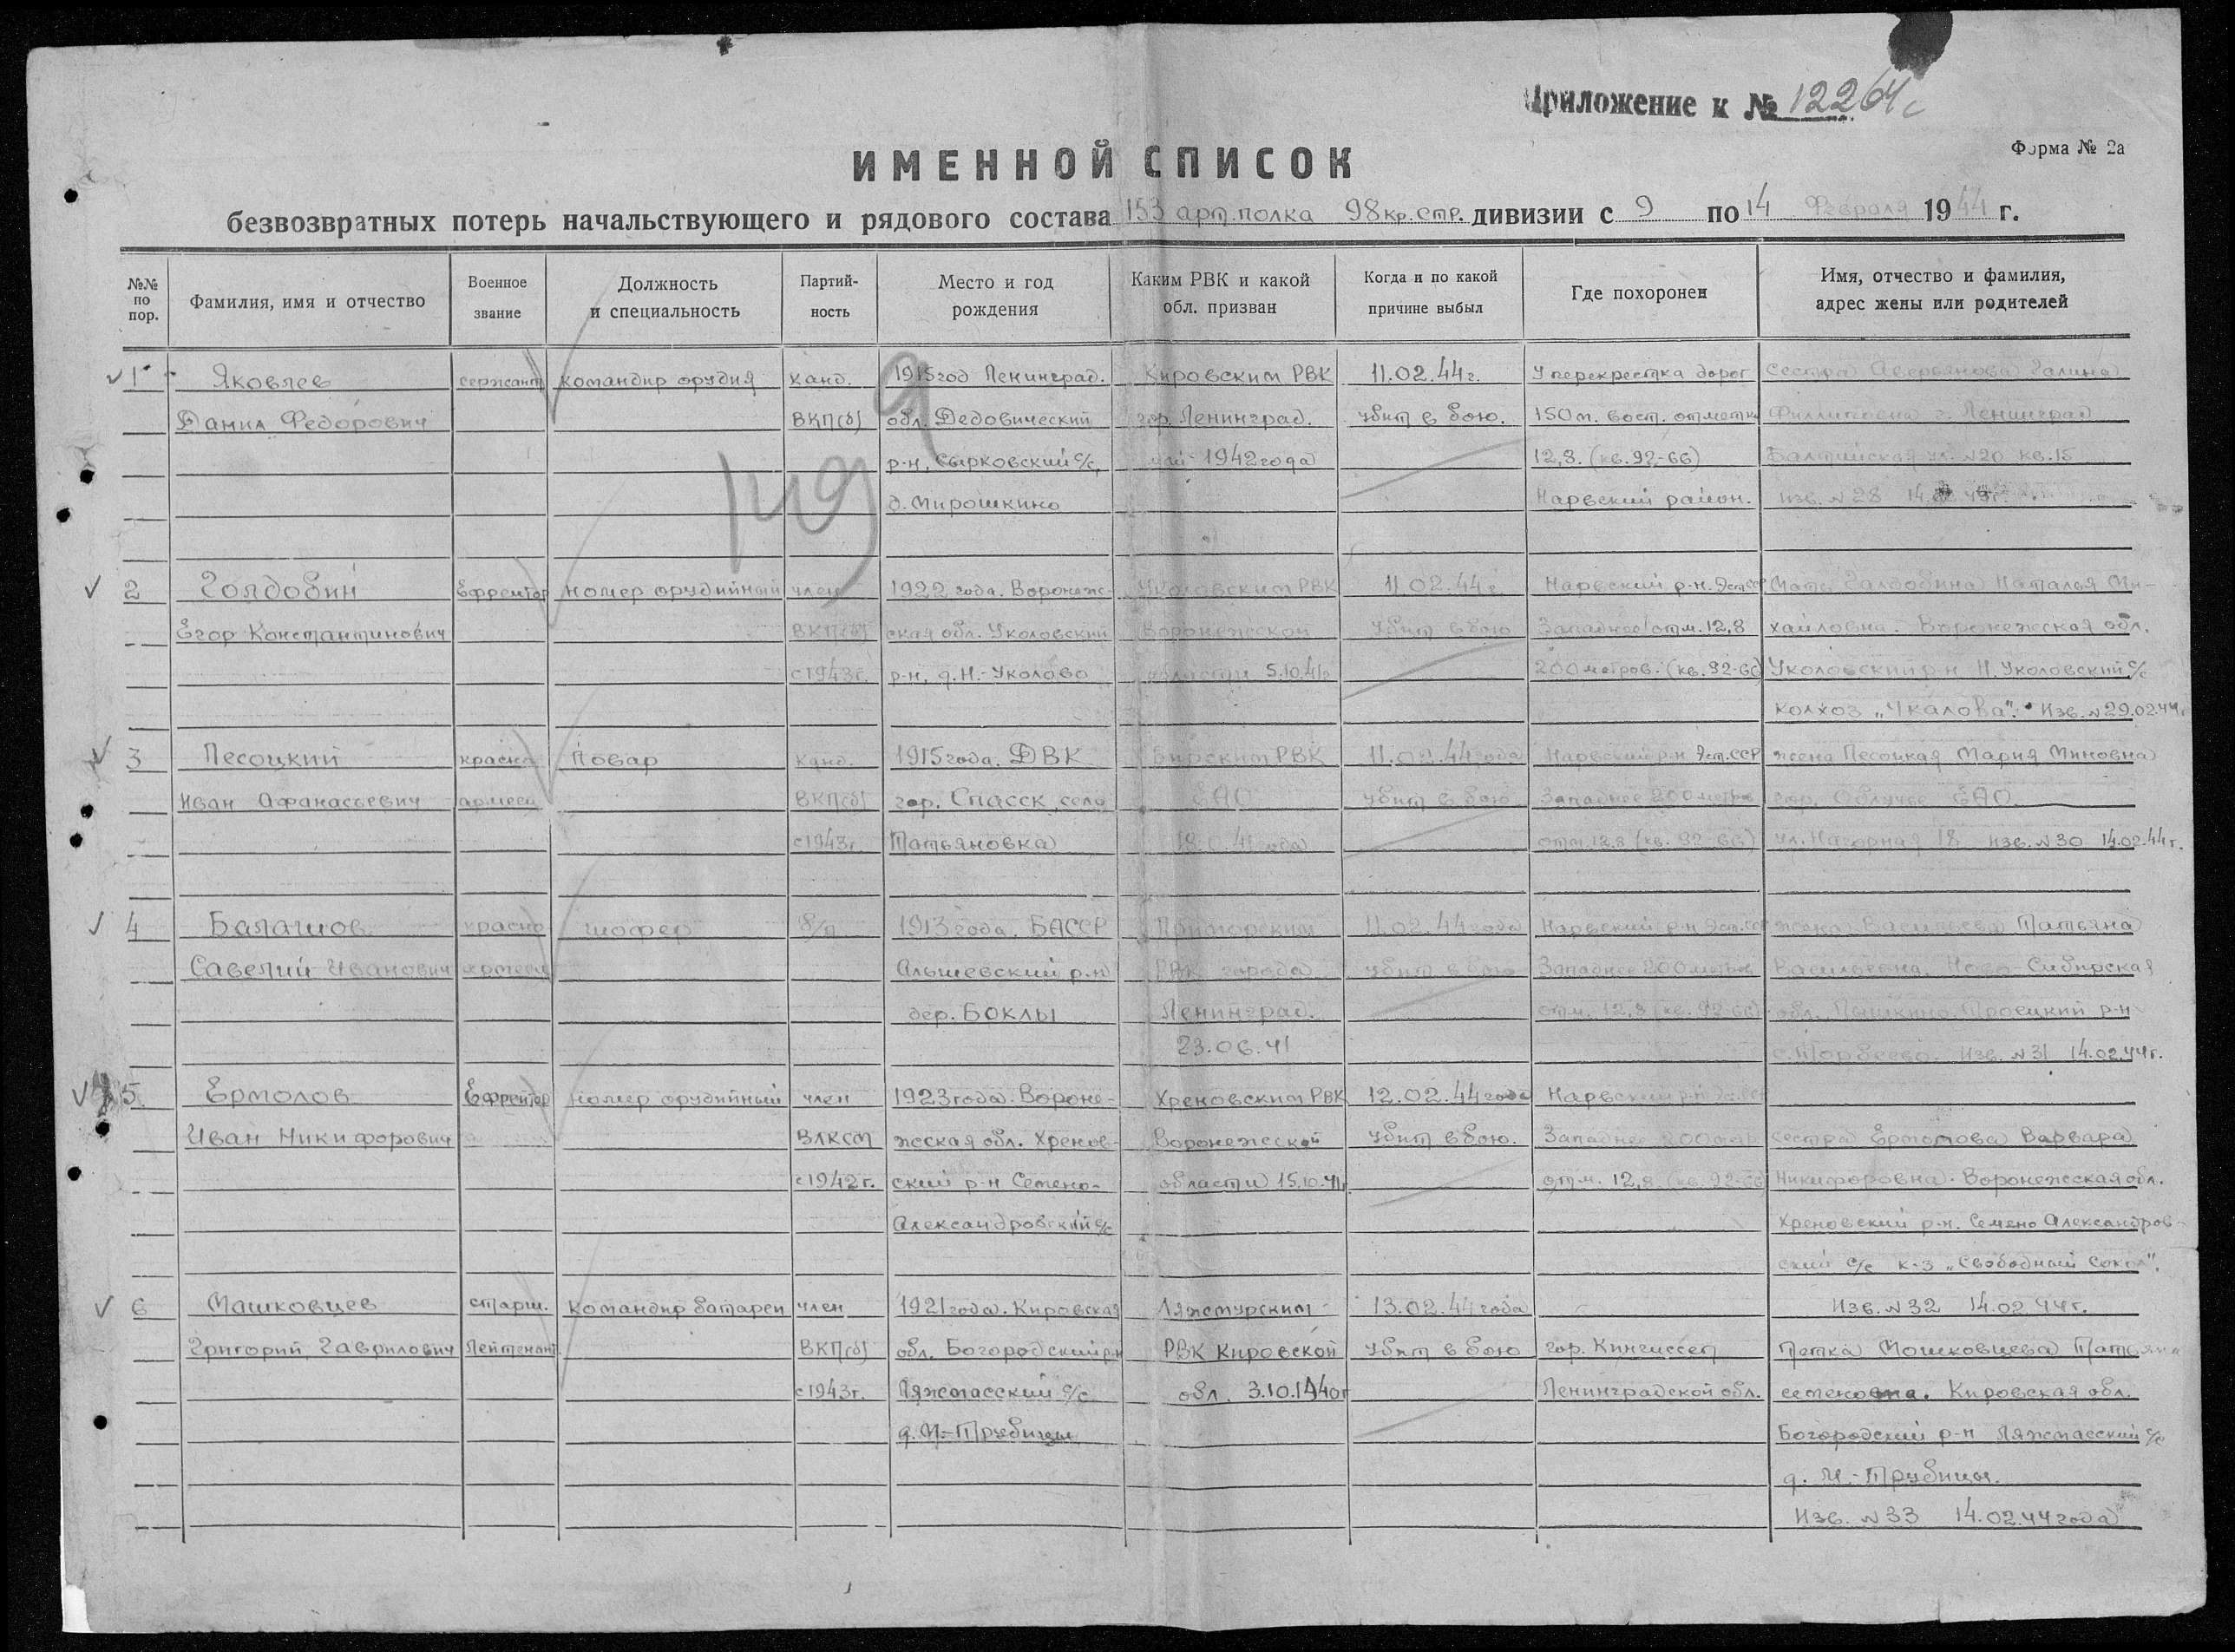 Приложение к № 12264с
Форма № 2а
ИМЕННОЙ СПИСОК
безвозвратных потерь начальствующего и рядового состава 153 арт. полка 98 кр. стр. дивизии с 9 по 14 Февраля 1944 г.
№№ по пор.
Фамилия, имя и отчество
Военное звание
Должность и специальность
Партий-ность
Место и год рождения
Каким РВК и какой обл. призван
Когда и по какой причине выбыл
Где похоронен
Имя, отчество и фамилия, адрес жены или родителей
149
9
1 Яковлев сержант командир орудия канд. 1915 год Ленинград. Кировским РВК 11.02.44г. У перекрестка дорог сестра Аверьянова Галина
Данил Федорович ВКП(б) обл. Дедовический гор. Ленинград. убит в бою. 150 м. вост. отметки Филлиповна г. Ленинград
р-н, Сырковский с/с, 1942 года 12,8. (кв. 92-66) Балтийская ул. N20 кв. 15
д. Мирошкино Нарвский район. изв. N 28 14. 44г.
2 Голдобин Ефрейтор номер орудийный член 1922 года. Воронеж- Уколовским РВК 11.02.44г Нарвский р-н. Эст.ССР Мать Галдобина Наталья Ми-
Егор Константинович ВКП(б) ская обл. Уколовский Воронежской Убит в бою Западнее отм. 12,8 хайловна. Воронежская обл.
с 1943г. р-н, д. Н.-Уколово области 5.10.41г 200 метров. (кв. 92-66) Уколовский р-н Н. Уколовский с/с
колхоз „Чкалова". Изв. N29.02.44г
3 Песоцкий красно Повар канд. 1915 года. ДВК Бирским РВК 11.02.44 года Нарвский р-н Эст.ССР жена Песоцкая Мария Миновна
Иван Афанасьевич армеец ВКП(б) гор. Спасск, село ЕАО убит в бою Западнее 200 метров гор. Облучье ЕАО.
с 1943г. Татьяновка отм. 12,8 (кв. 92-66) ул. Нагорная 18 изв. N30 14.02.44г.
4 Балашов красно шофер б/п 1913 года. БАССР Приморским 11.02.44 года Нарвский р-н Эст.ССР жена Васильева Татьяна
Савелий Иванович армеец Альшевский р-н РВК города убит в бою Западнее 200 метров Васильевна. Ново-Сибирская
дер. Боклы Ленинград. отм. 12,8 (кв. 92-66) обл. Троецкий р-н
23.06.41 с. Торбеево. Изв. N31 14.02.44г.
5 Ермолов Ефрейтор номер орудийный член 1923 года. Вороне- Хреновским РВК 12.02.44 года Нарвский р-н
Иван Никифорович ВЛКСМ жская обл. Хренов- Воронежской убит в бою. Западнее 200 метр сестра Ермолова Варвара
с 1942г. ский р-н Семено- области 15.10.41г отм. 12,8 (кв. 92-66) Никифоровна. Воронежская обл.
Александровский с/с Хреновский р-н. Семено Александров-
ский с/с к-з „Свободный Сокол".
6 Машковцев старш. командир батареи член 1921 года. Кировская Ляжемурским 13.02.44 года Изв. N32 14.02.44г.
Григорий Гаврилович Лейтенант ВКП(б) обл. Богородский р-н РВК Кировской убит в бою гор. Кингиссеп тетка Мошковцева Татьяна
с 1943г. Ляжмасский с/с обл. 3.10.1940г Ленинградской обл. семеновна. Кировская обл.
д. М.-Трубицы Богородский р-н Ляжмасский с/с
д. М.-Трубицы.
Изв. N33 14.02.44 года